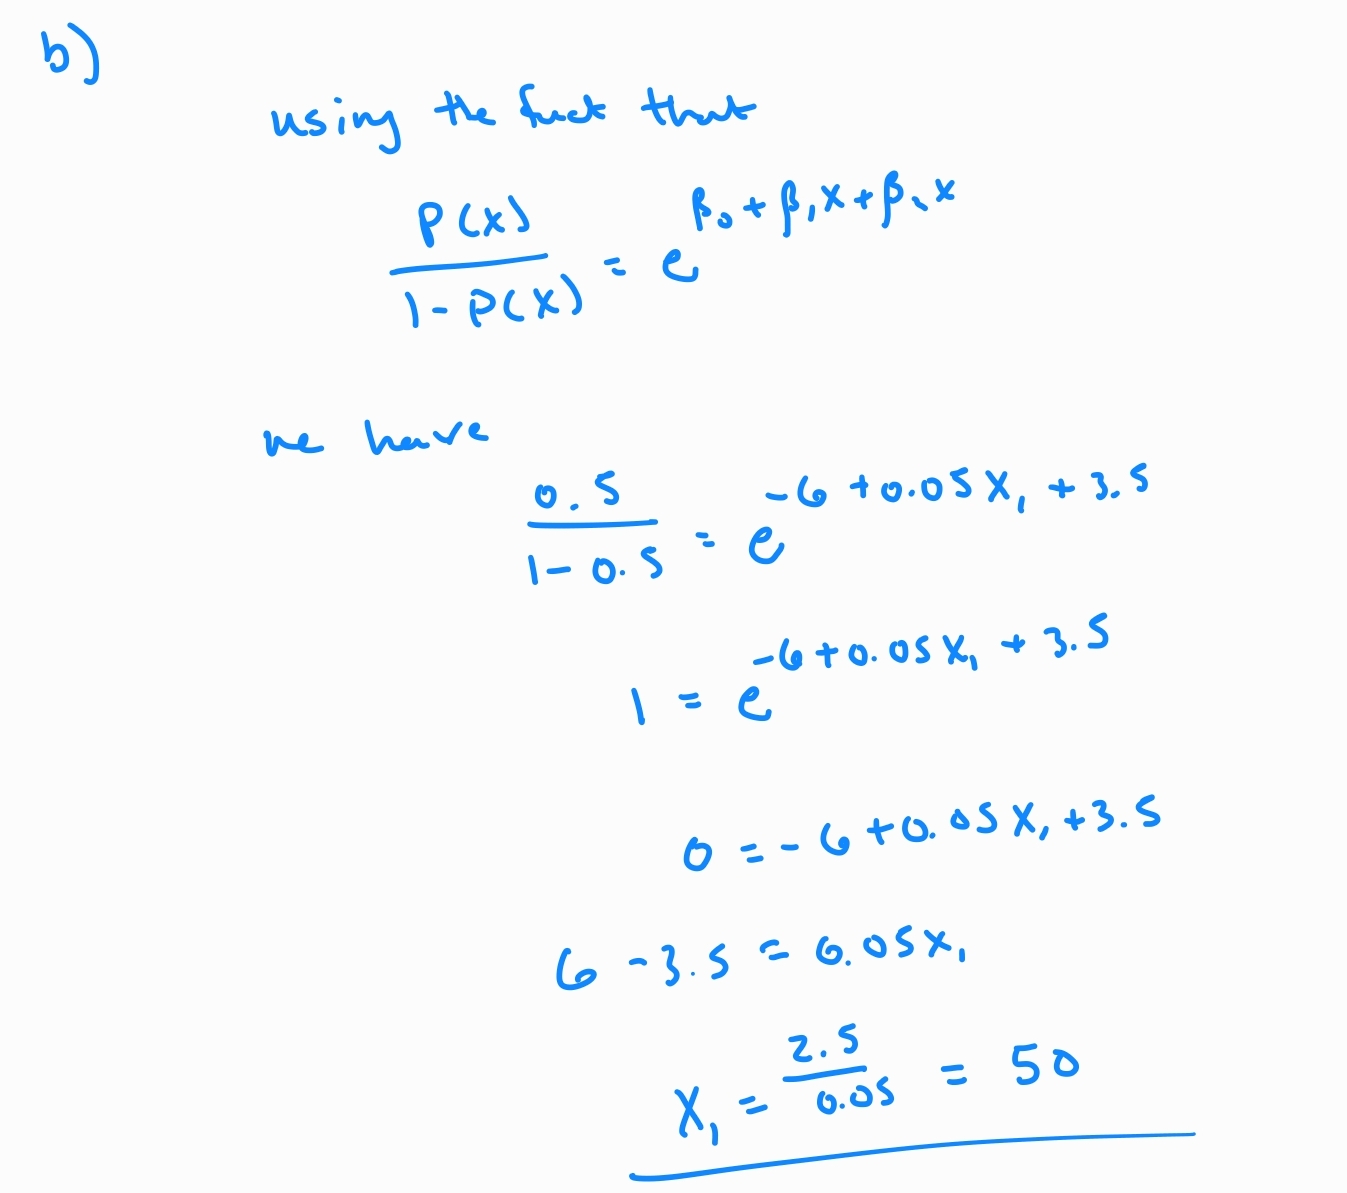 b)
using the fact that
P(X) / 1 - P(X) = e^β₀ + β₁X + β₂X
we have
0.5 / 1 - 0.5 = e^-6 + 0.05X₁ + 3.5
1 = e^-6 + 0.05X₁ + 3.5
0 = -6 + 0.05X₁ + 3.5
6 - 3.5 = 0.05X₁
X₁ = 2.5 / 0.05 = 50